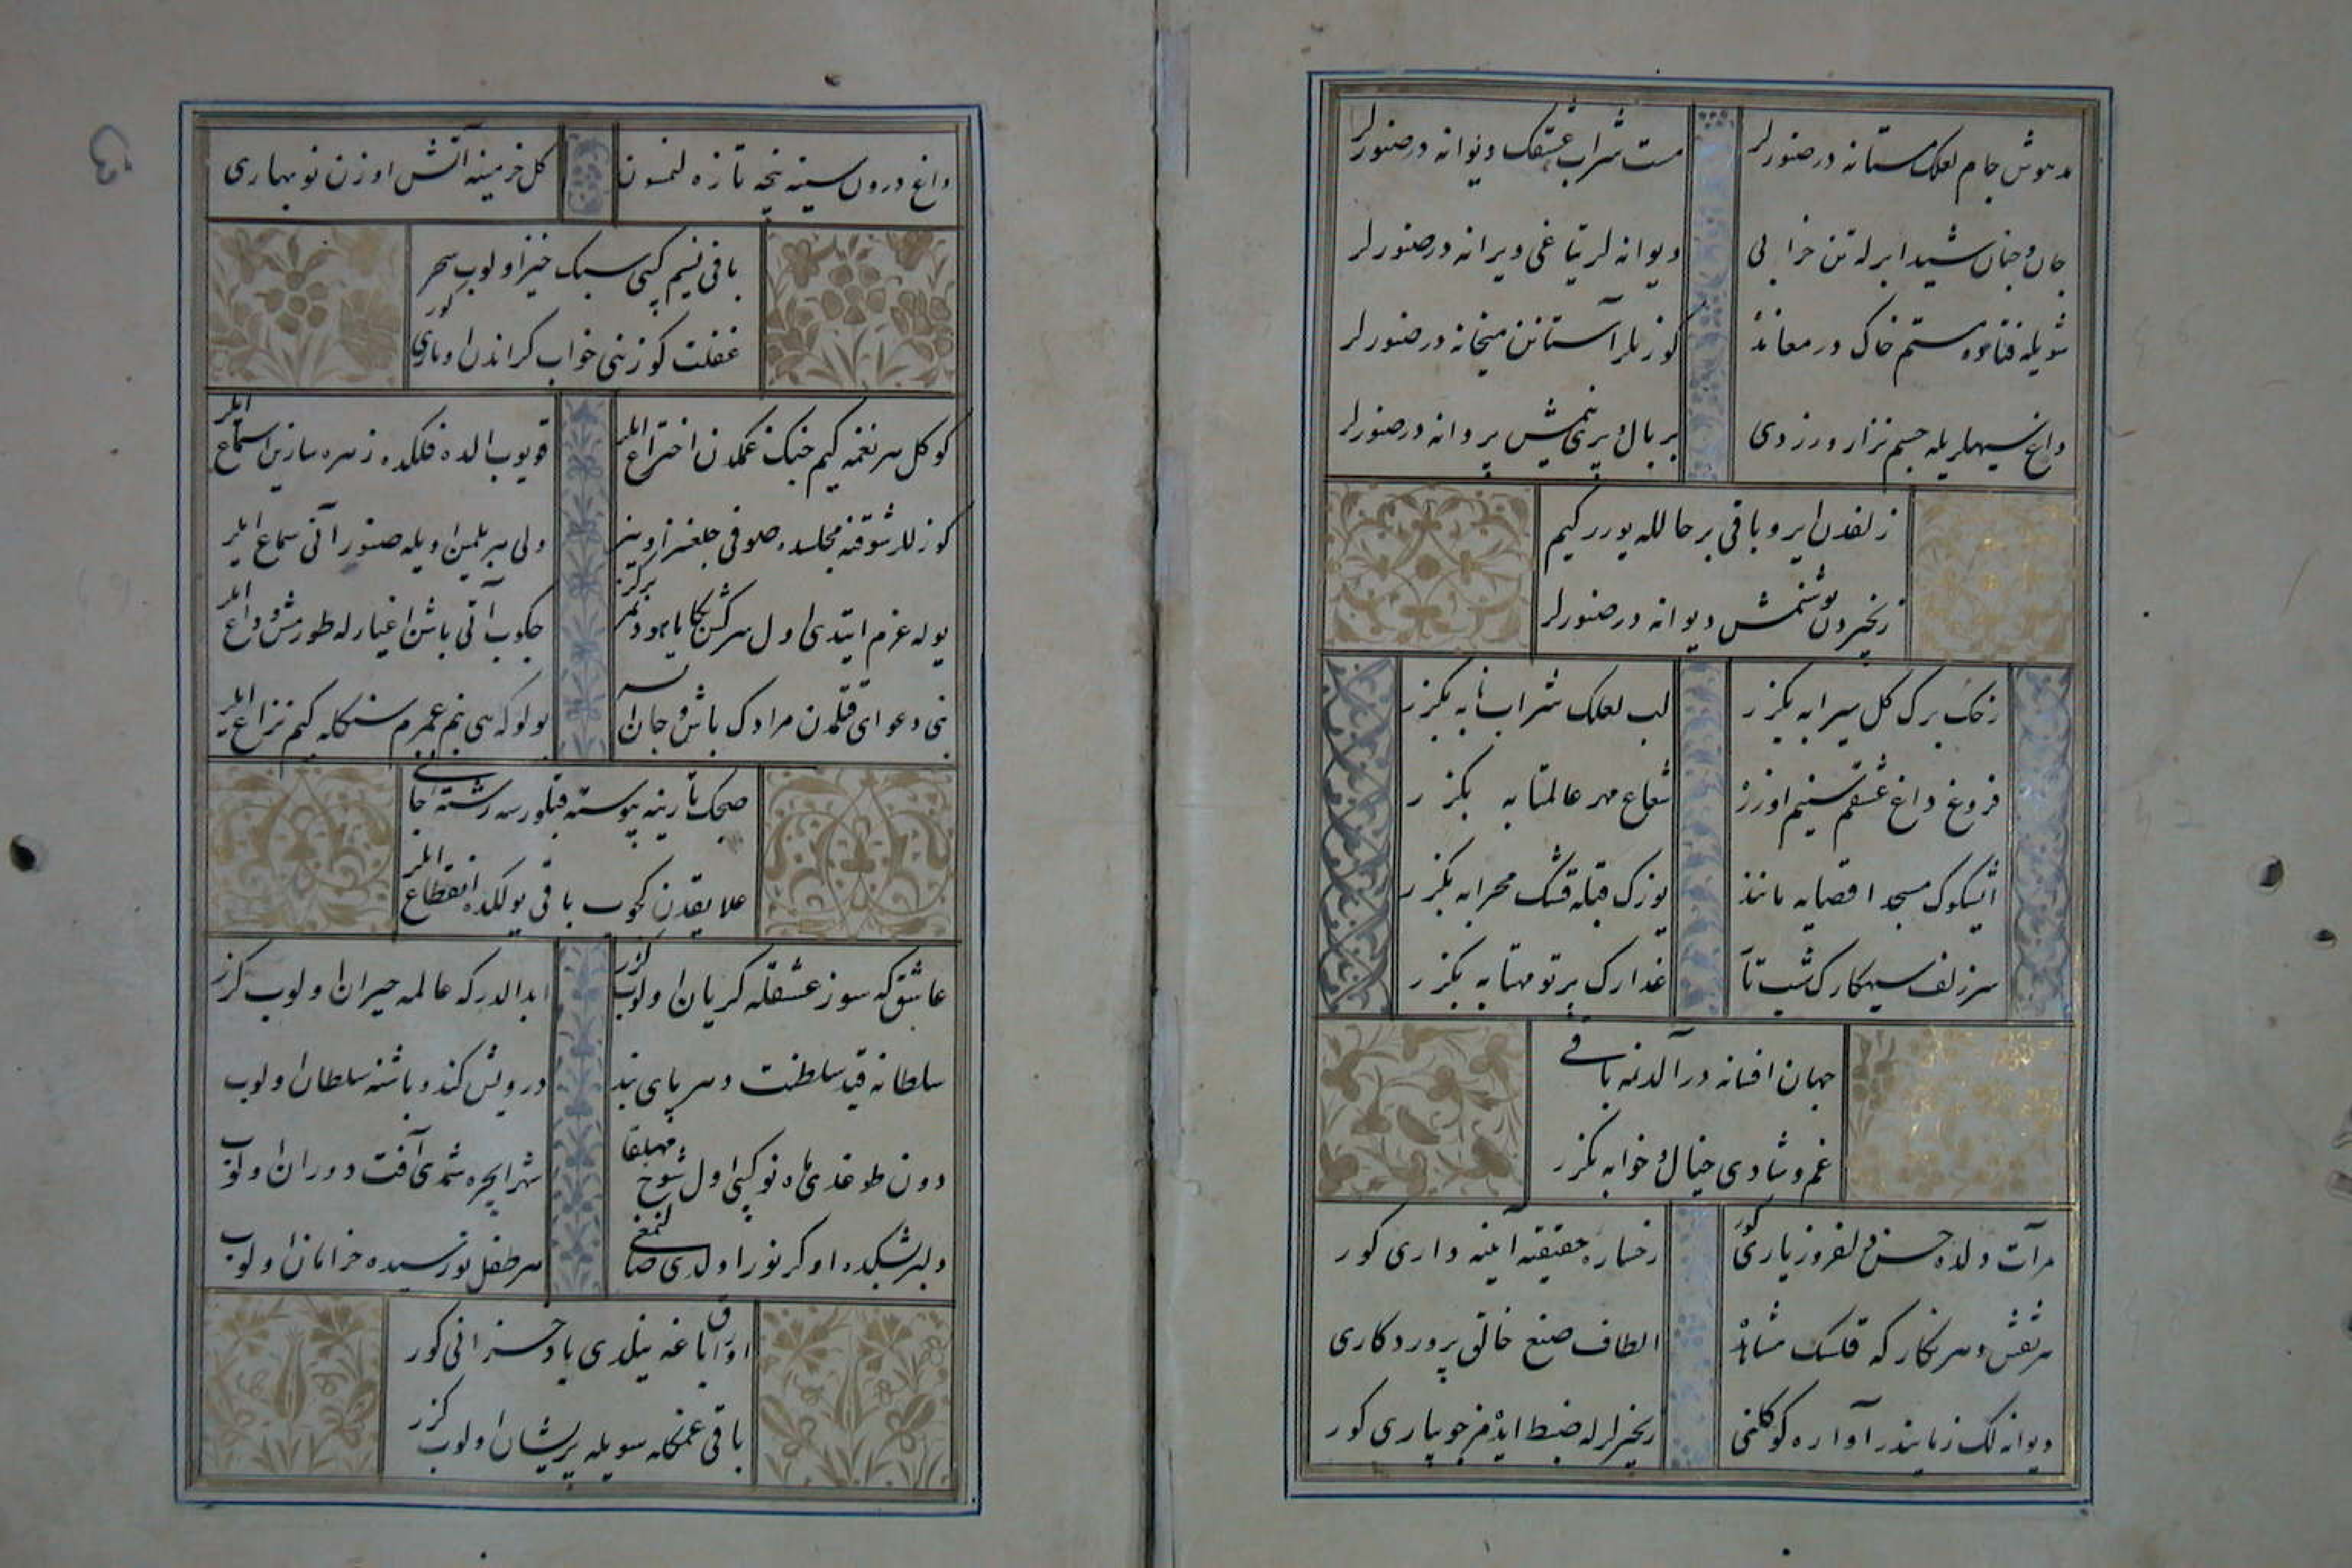 مدهوش جام لعلک مستانه در صنورلر
مست شراب عشقک دیوانه در صنورلر
جان و جنان شیدا بر له تن خرابی
دیوانه لر یتاغی ویرانه در صنورلر
شویله فتاده مستم خاک در مغانده
کوزیلر آستانن میخانه در صنورلر
داغ سیهلریله جسم نزار و زردی
بر بال و پری یانمش پروانه در صنورلر
زلفدن ایرو باقی بر حالله یورر کیم
زنجیردن بوشنمش دیوانه در صنورلر
رخک برک کل سیرابه بکزر
لب لعلک شراب نابه بکزر
فروغ داغ عشقم سینم اوزره
شعاع مهر عالمتابه بکزر
اشیکوک مسجد اقصایه مانند
یوزک قبله قشک محرابه بکزر
سر زلف سیهکارک شب تار
عذارک پرتو مهتابه بکزر
جهان افسانه در آلدنمه باقی
غم و شادی خیال و خوابه بکزر
مرآت دلده حسن دلفروز یاری کور
رخساره حقیقته آینه داری کور
هر نقش و هر نکار که قلسک مشاهده
الطاف صنع خالق پروردکاری کور
دیوانه لک زمانیدر آواره کوکلمی
زنجیرلرله ضبط ایدمز جویباری کور
داغ درون سینه نیجه تازه لنمسون
کل خرمینه آتش اوزن نوبهاری
باقی نسیم کبی سبک خیز اولوب سحر
غفلت کوزینی خواب کراندن اویاری کور
کوکل هر نغمه کیم چنک غمکدن اختراع ایلر
قویوب الده فلکده زهره سازین استماع ایلر
کوزللر شوقنه مجلسده صوفی چلغنر اوینر
ولی هر بلمین اویله صنور آنی سماع ایلر
یوله عزم ایتدی اول سرکش بکا یا هو دیمز هرکز
چکوب آتی باشن اغیارله طورمش وداع ایلر
نه دعوای قتلمدن مرادک باش و جان اولسه
بولوکه سی بنم عمرم سنکله کیم نزاع ایلر
صچک تارینه پیوسته قیلورسه رشته جانی
علایقدن کچوب باقی یولکده انقطاع ایلر
عاشق که سوز عشقله کریان اولوب کزر
ابدالدر که عالمه حیران اولوب کزر
سلطانه قید سلطنت دهر پای بند
درویش کندو باشنه سلطان اولوب
دون طوغدی ماه نو کبی اول شوخ مهلقا
شهر ایچره شمدی آفت دوران اولوب
دلبر اشیکده اوکرنور اولدی صالنمغی
هر طفل نورسیده خرامان اولوب
اوراق باغه نیلدی باد خزانی کور
باقی غمکله سویله پریشان اولوب کزر